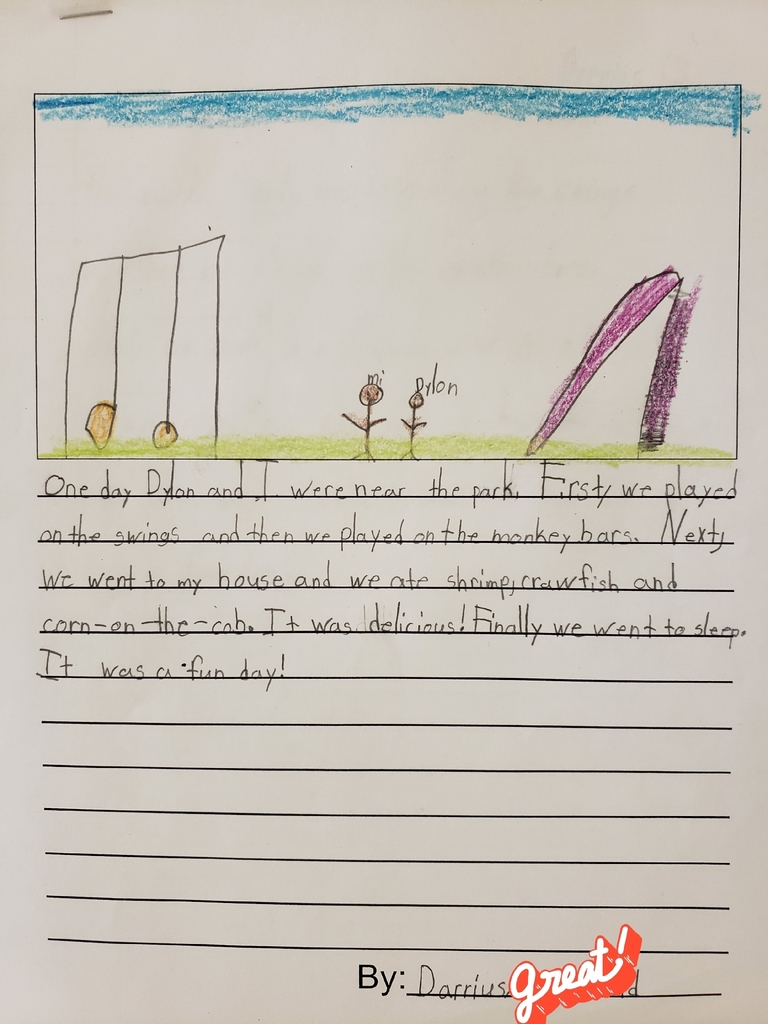 mi
Dylon
One day Dylon and I were near the park. First, we played
on the swings and then we played on the monkey bars. Next,
we went to my house and we ate shrimp, crawfish and
corn-on-the-cob. It was delicious! Finally we went to sleep.
It was a fun day!
By: Darrius
great!